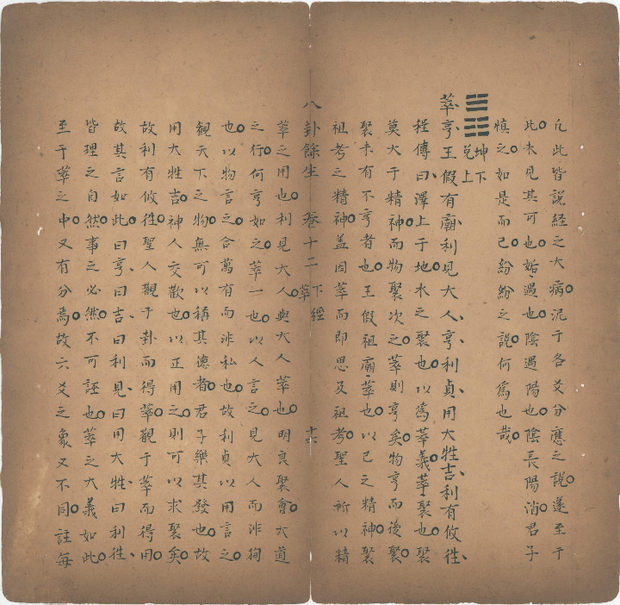 凢此皆說經之大病泥于各爻分應之說遂至于
此未見其可也姤遇也陰遇陽也陰長陽消君子
慎之如是而已紛紛之說何爲也哉
坤下
兌上
萃亨王假有廟利見大人亨利貞用大牲吉利有攸徃
程傳曰澤上于地水之聚也以爲萃義萃聚也聚
莫大于精神而物聚次之萃則亨矣物亨而後聚
聚未有不亨者也王假祖廟萃也以已之精神聚
祖考之精神盖因萃而即思及祖考聖人所以精
八卦餘生 卷十二 下經 萃
萃之用也利見大人與大人萃也明良聚會大道
之行何亨如之萃一也以人言之見大人而非徇
也以物言之合萬有而非私也故利貞以用言之
觀天下之物無可以稱其德者君子樂其發也故
用大牲吉神人交歡也以正用之則可以求聚矣
故利有攸徃聖人觀于卦而得萃觀于萃而得用
故其言如此曰亨曰吉曰利見曰用大牲曰利徃
皆理之自然事之必然不可誣也萃之大義如此
至于萃之中又有分焉故六爻之象又不同註每